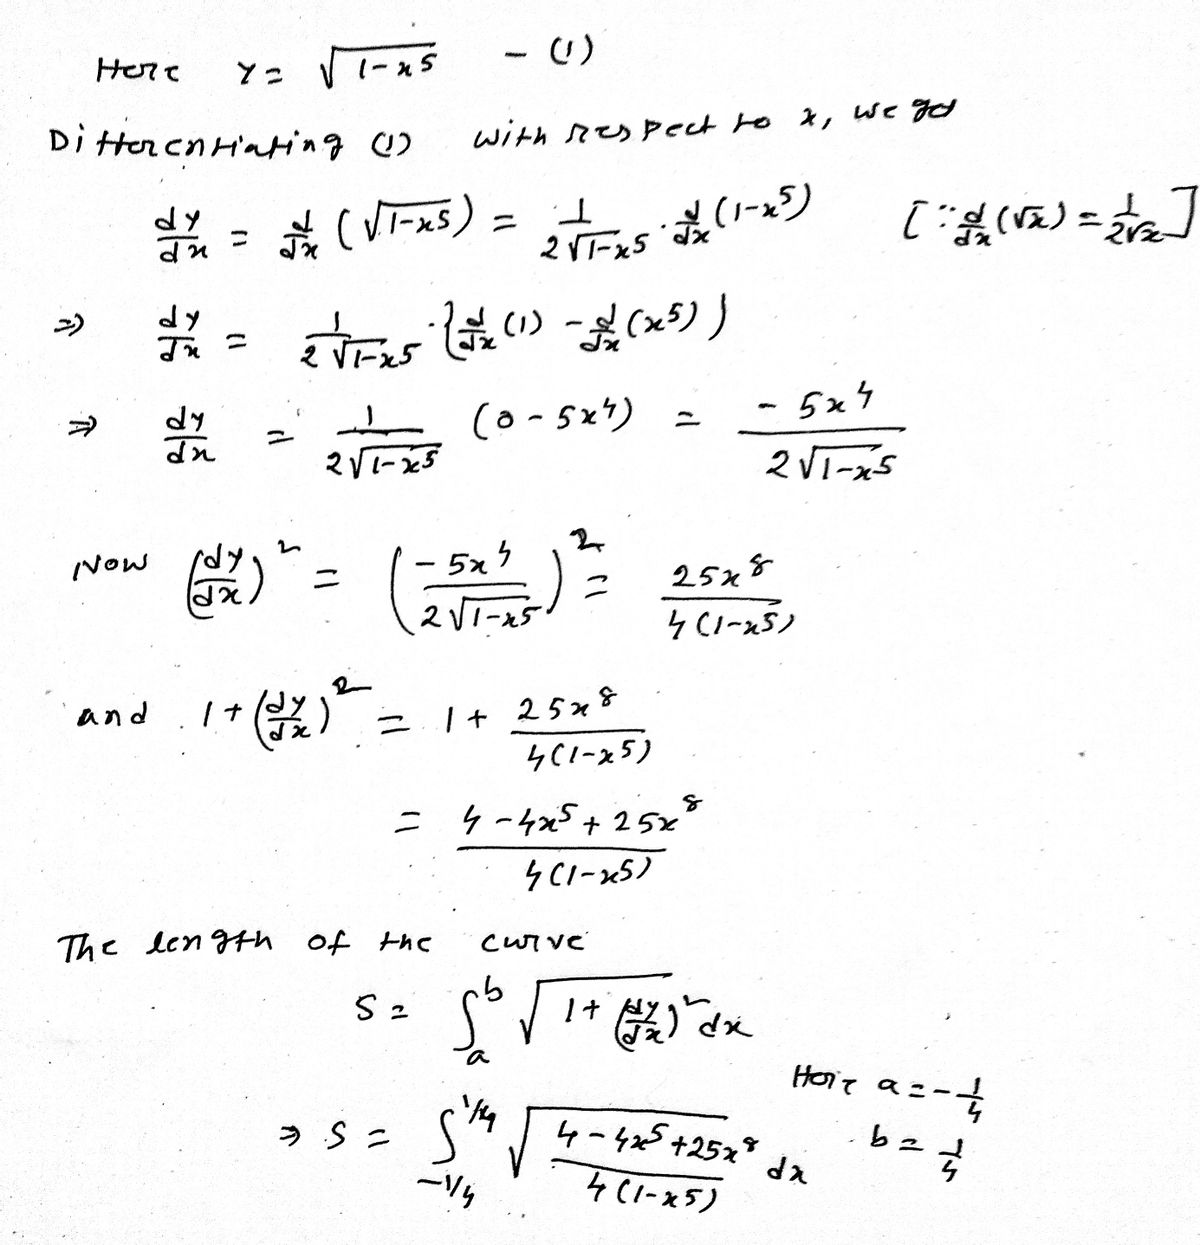 Here Y = √(1-x5) - (1)
Differentiating (1) with respect to x, we get
dy/dx = d/dx (√(1-x5)) = 1/(2√(1-x5)) · d/dx (1-x⁵) [∵ d/dx (√x) = 1/(2√x)]
⇒ dy/dx = 1/(2√(1-x5)) · {d/dx (1) - d/dx (x5)}
⇒ dy/dx = 1/(2√(1-x5)) (0 - 5x⁴) = - 5x⁴/(2√(1-x5))
Now (dy/dx)² = (- 5x⁴/(2√(1-x5)))² = 25x⁸/(4(1-x5))
and 1+(dy/dx)² = 1 + 25x⁸/(4(1-x5))
= (4-4x⁵+25x⁸)/(4(1-x5))
The length of the curve
S = ∫ₐᵇ √(1+(dy/dx)²) dx
Here a = -1/4
⇒ S = ∫_{-1/4}^{1/4} √((4-4x⁵+25x⁸)/(4(1-x5))) dx
b = 1/4